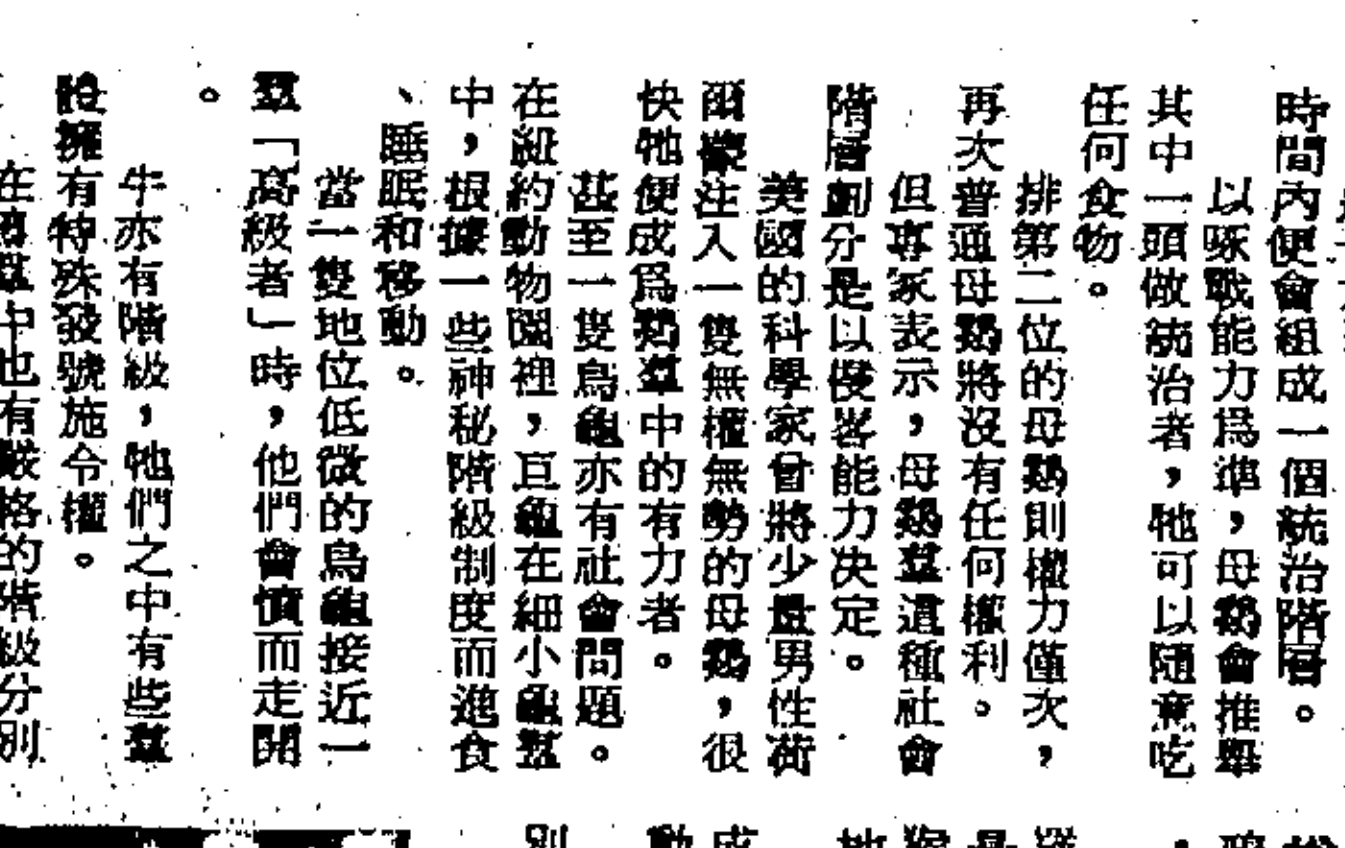 時間內便會組成一個統治階層。
以啄戰能力爲準，母鷄會推舉
其中一頭做統治者，牠可以隨意吃
任何食物。
排第二位的母鷄則權力僅次，
再次普通母鷄將沒有任何權利。
但專家表示，母鷄羣這種社會
階層劃分是以慢畧能力決定。
美國的科學家曾將少量男性荷
爾蒙注入一隻無權無勢的母鷄，很
快牠便成爲鷄羣中的有力者。
甚至一隻烏龜亦有社會問題。
在紐約動物園裡，巨龜在細小龜羣
中，根據一些神秘階級制度而進食
、睡眠和移動。
當一隻地位低微的烏龜接近一
羣「高級者」時，他們會憤而走開
。
牛亦有階級，牠們之中有些羣
體擁有特殊發號施令權。
羣中也有嚴格的階級分別